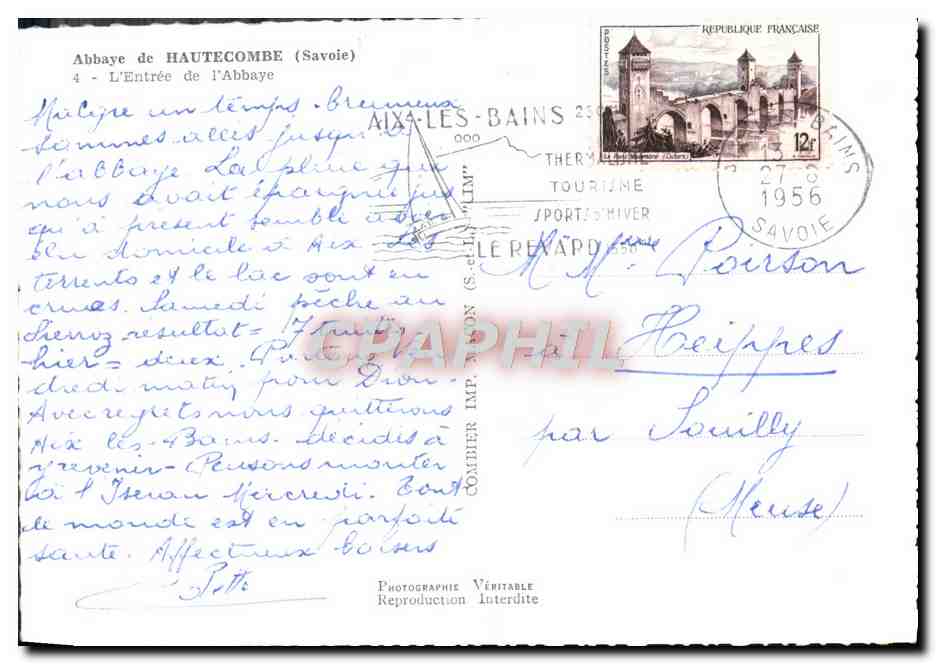 Abbaye de HAUTECOMBE (Savoie)
4 - L'Entrée de l'Abbaye
Malgré un temps brumeux
sommes allés jusqu'à
l'abbaye La pluie qui
nous avait épargné jus
qu'à présent semble avoir
élu domicile à Aix Les
torrents et le lac sont en
crues. Samedi pêche au
résultat = 17
hier = deux. Ven
dredi matin pour Dijon.
Avec regrets nous quitterons
Aix les-Bains. décidés à
y revenir - Pensons monter
à l'Iseran Mercredi. Tout
le monde est en parfaite
santé. Affectueux baisers
COMBIER IMP. MACON (S.-et-L.) "CIM"
AIX-LES-BAINS
THERMALISME
TOURISME
SPORTS D'HIVER
LE REVARD
RÉPUBLIQUE FRANÇAISE
POSTES
Le Pont Valentré (Cahors)
12F
BAINS
27-8
1956
SAVOIE
M. Mme Poirson
à Heippes
par Souilly
(Meuse)
PHOTOGRAPHIE VÉRITABLE
Reproduction Interdite
CPAPHIL